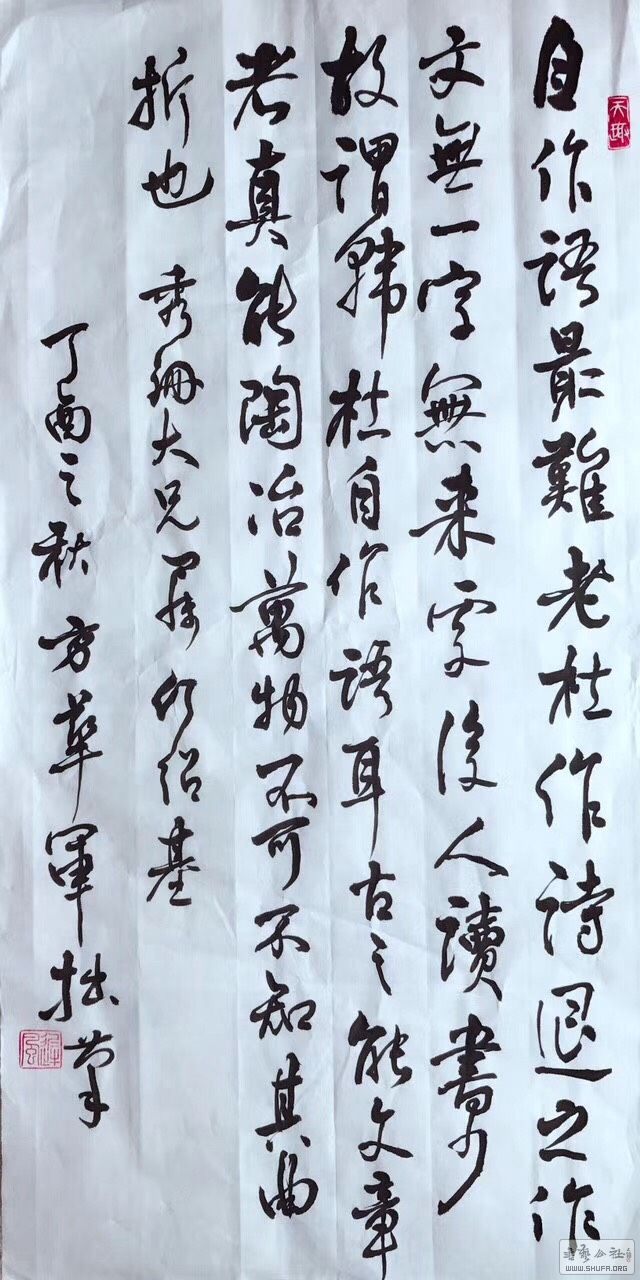 天趣
自作語最難老杜作詩退之作
文無一字無来處後人讀書少
故謂韓杜自作語耳古之能文章
老真能陶冶萬物不可不知其曲
折也 秀珊大兄属 何紹基
丁酉之秋 方華軍拙筆
書藝公社
WWW.SHUFA.ORG